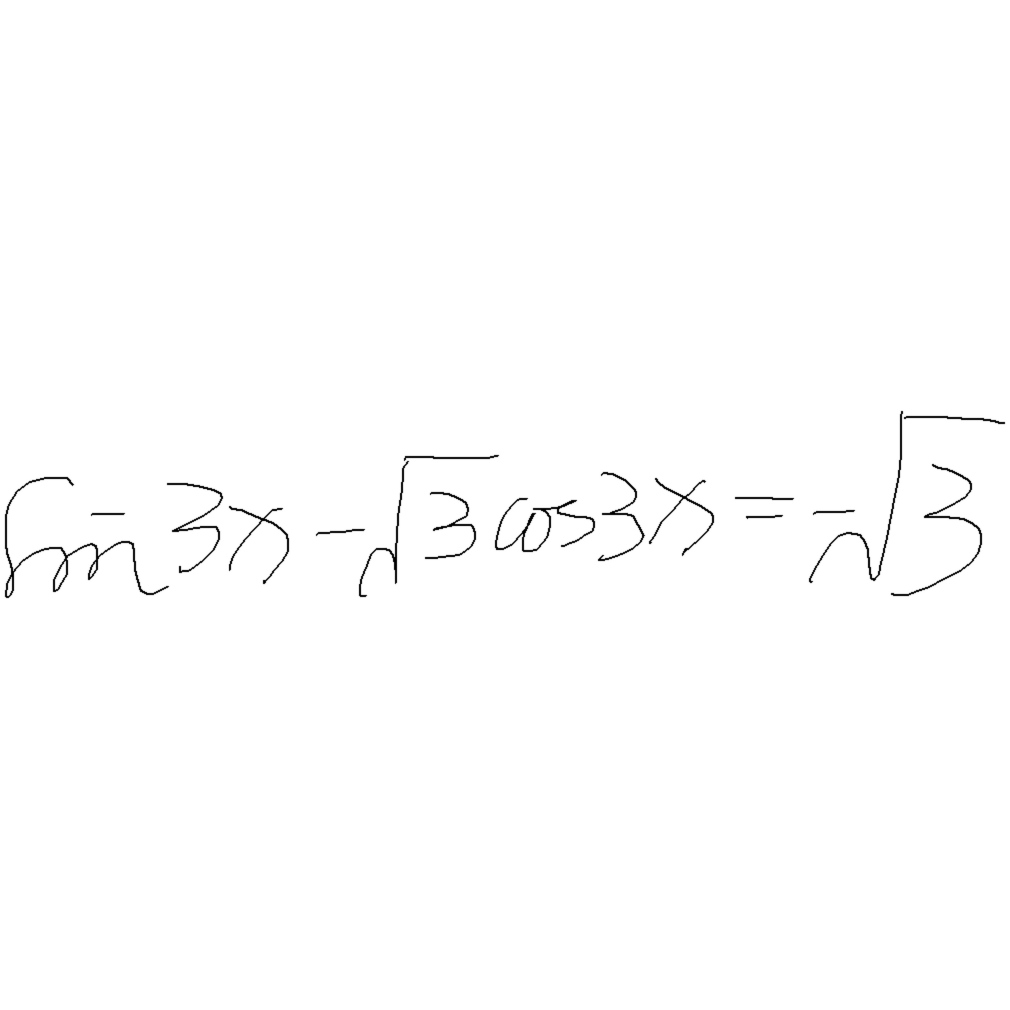 sin 3x - √3 cos3x = -√3